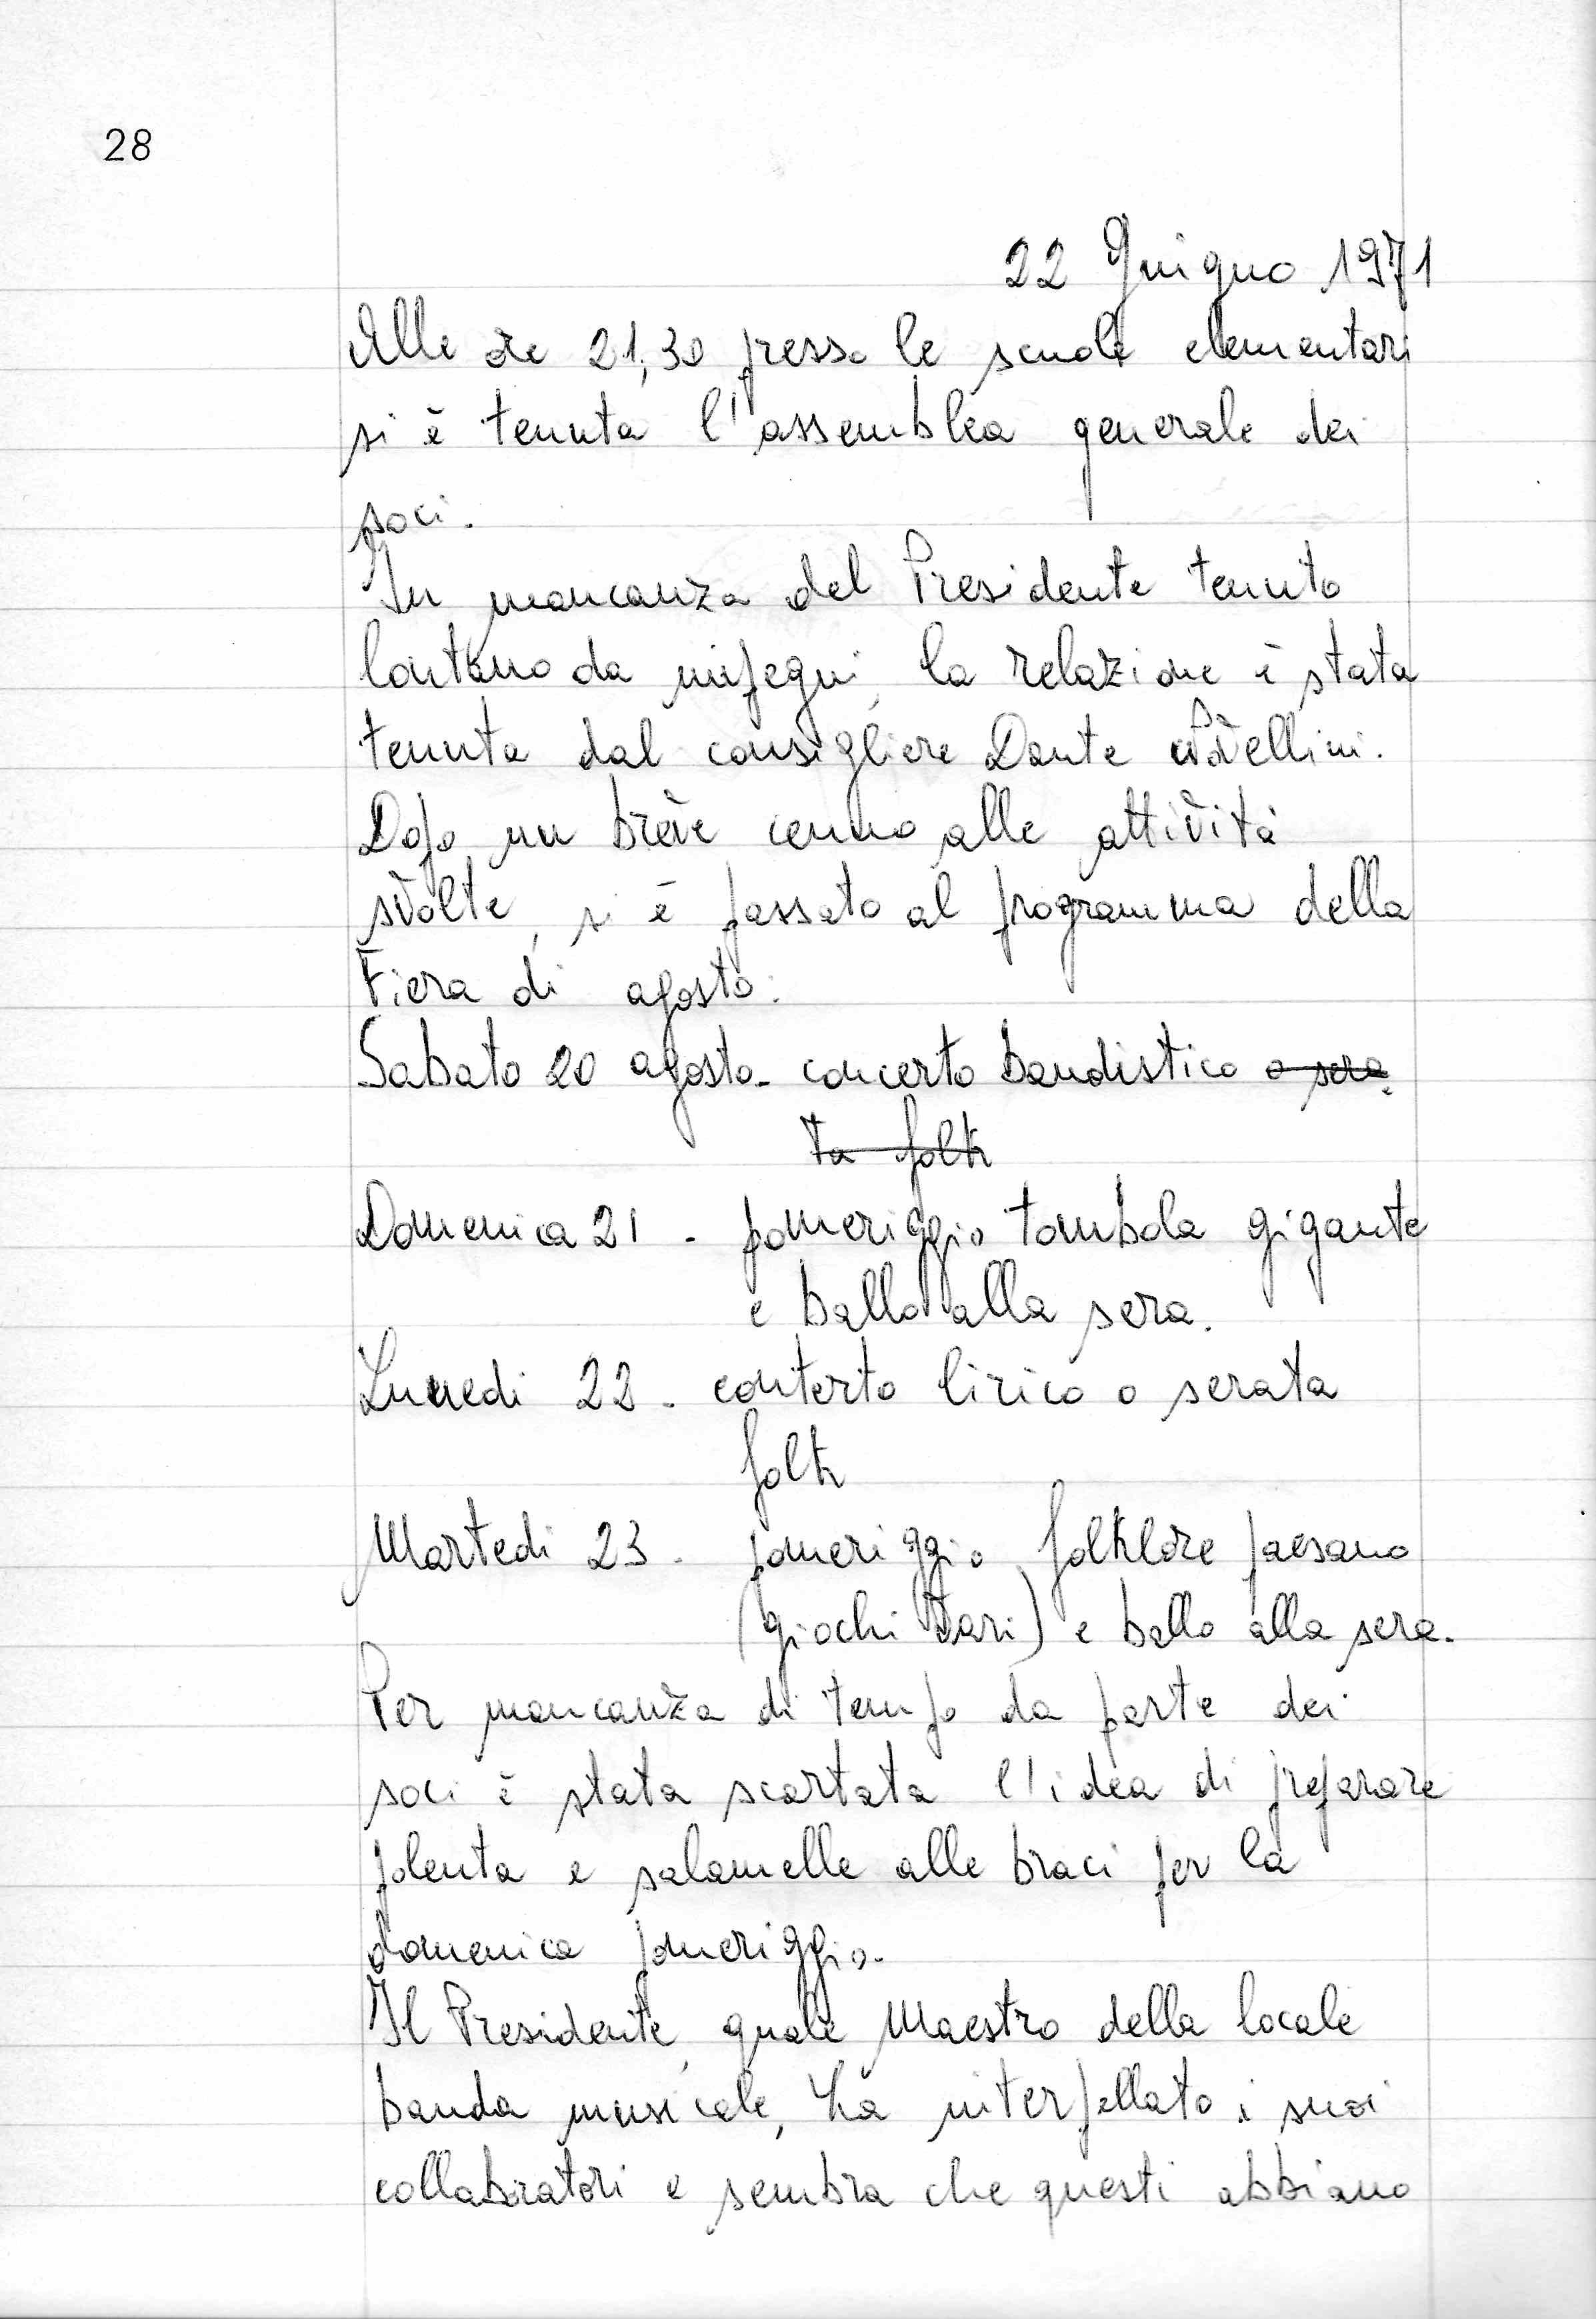 28
22 Giugno 1971
Alle ore 21,30 presso le scuole elementari
si è tenuta l'assemblea generale dei
soci.
In mancanza del Presidente tenuto
lontano da impegni, la relazione è stata
tenuta dal consigliere Dante
Dopo un breve cenno alle attività
svolte, si è passato al programma della
Fiera di agosto:
Sabato 20 agosto - concerto bandistico o sera
ta folk
Domenica 21 - pomeriggio tombola gigante
e ballo alla sera.
Lunedi 22 - conterto lirico o serata
folk
Martedi 23 - pomeriggio folklore paesano
(giochi vari) e ballo alla sera.
Per mancanza di tempo da parte dei
soci è stata scartata l'idea di preparare
polenta e salamelle alle braci per la
domenica pomeriggio.
Il Presidente, quale Maestro della locale
banda musicale, ha interpellato i suoi
collaboratori e sembra che questi abbiano